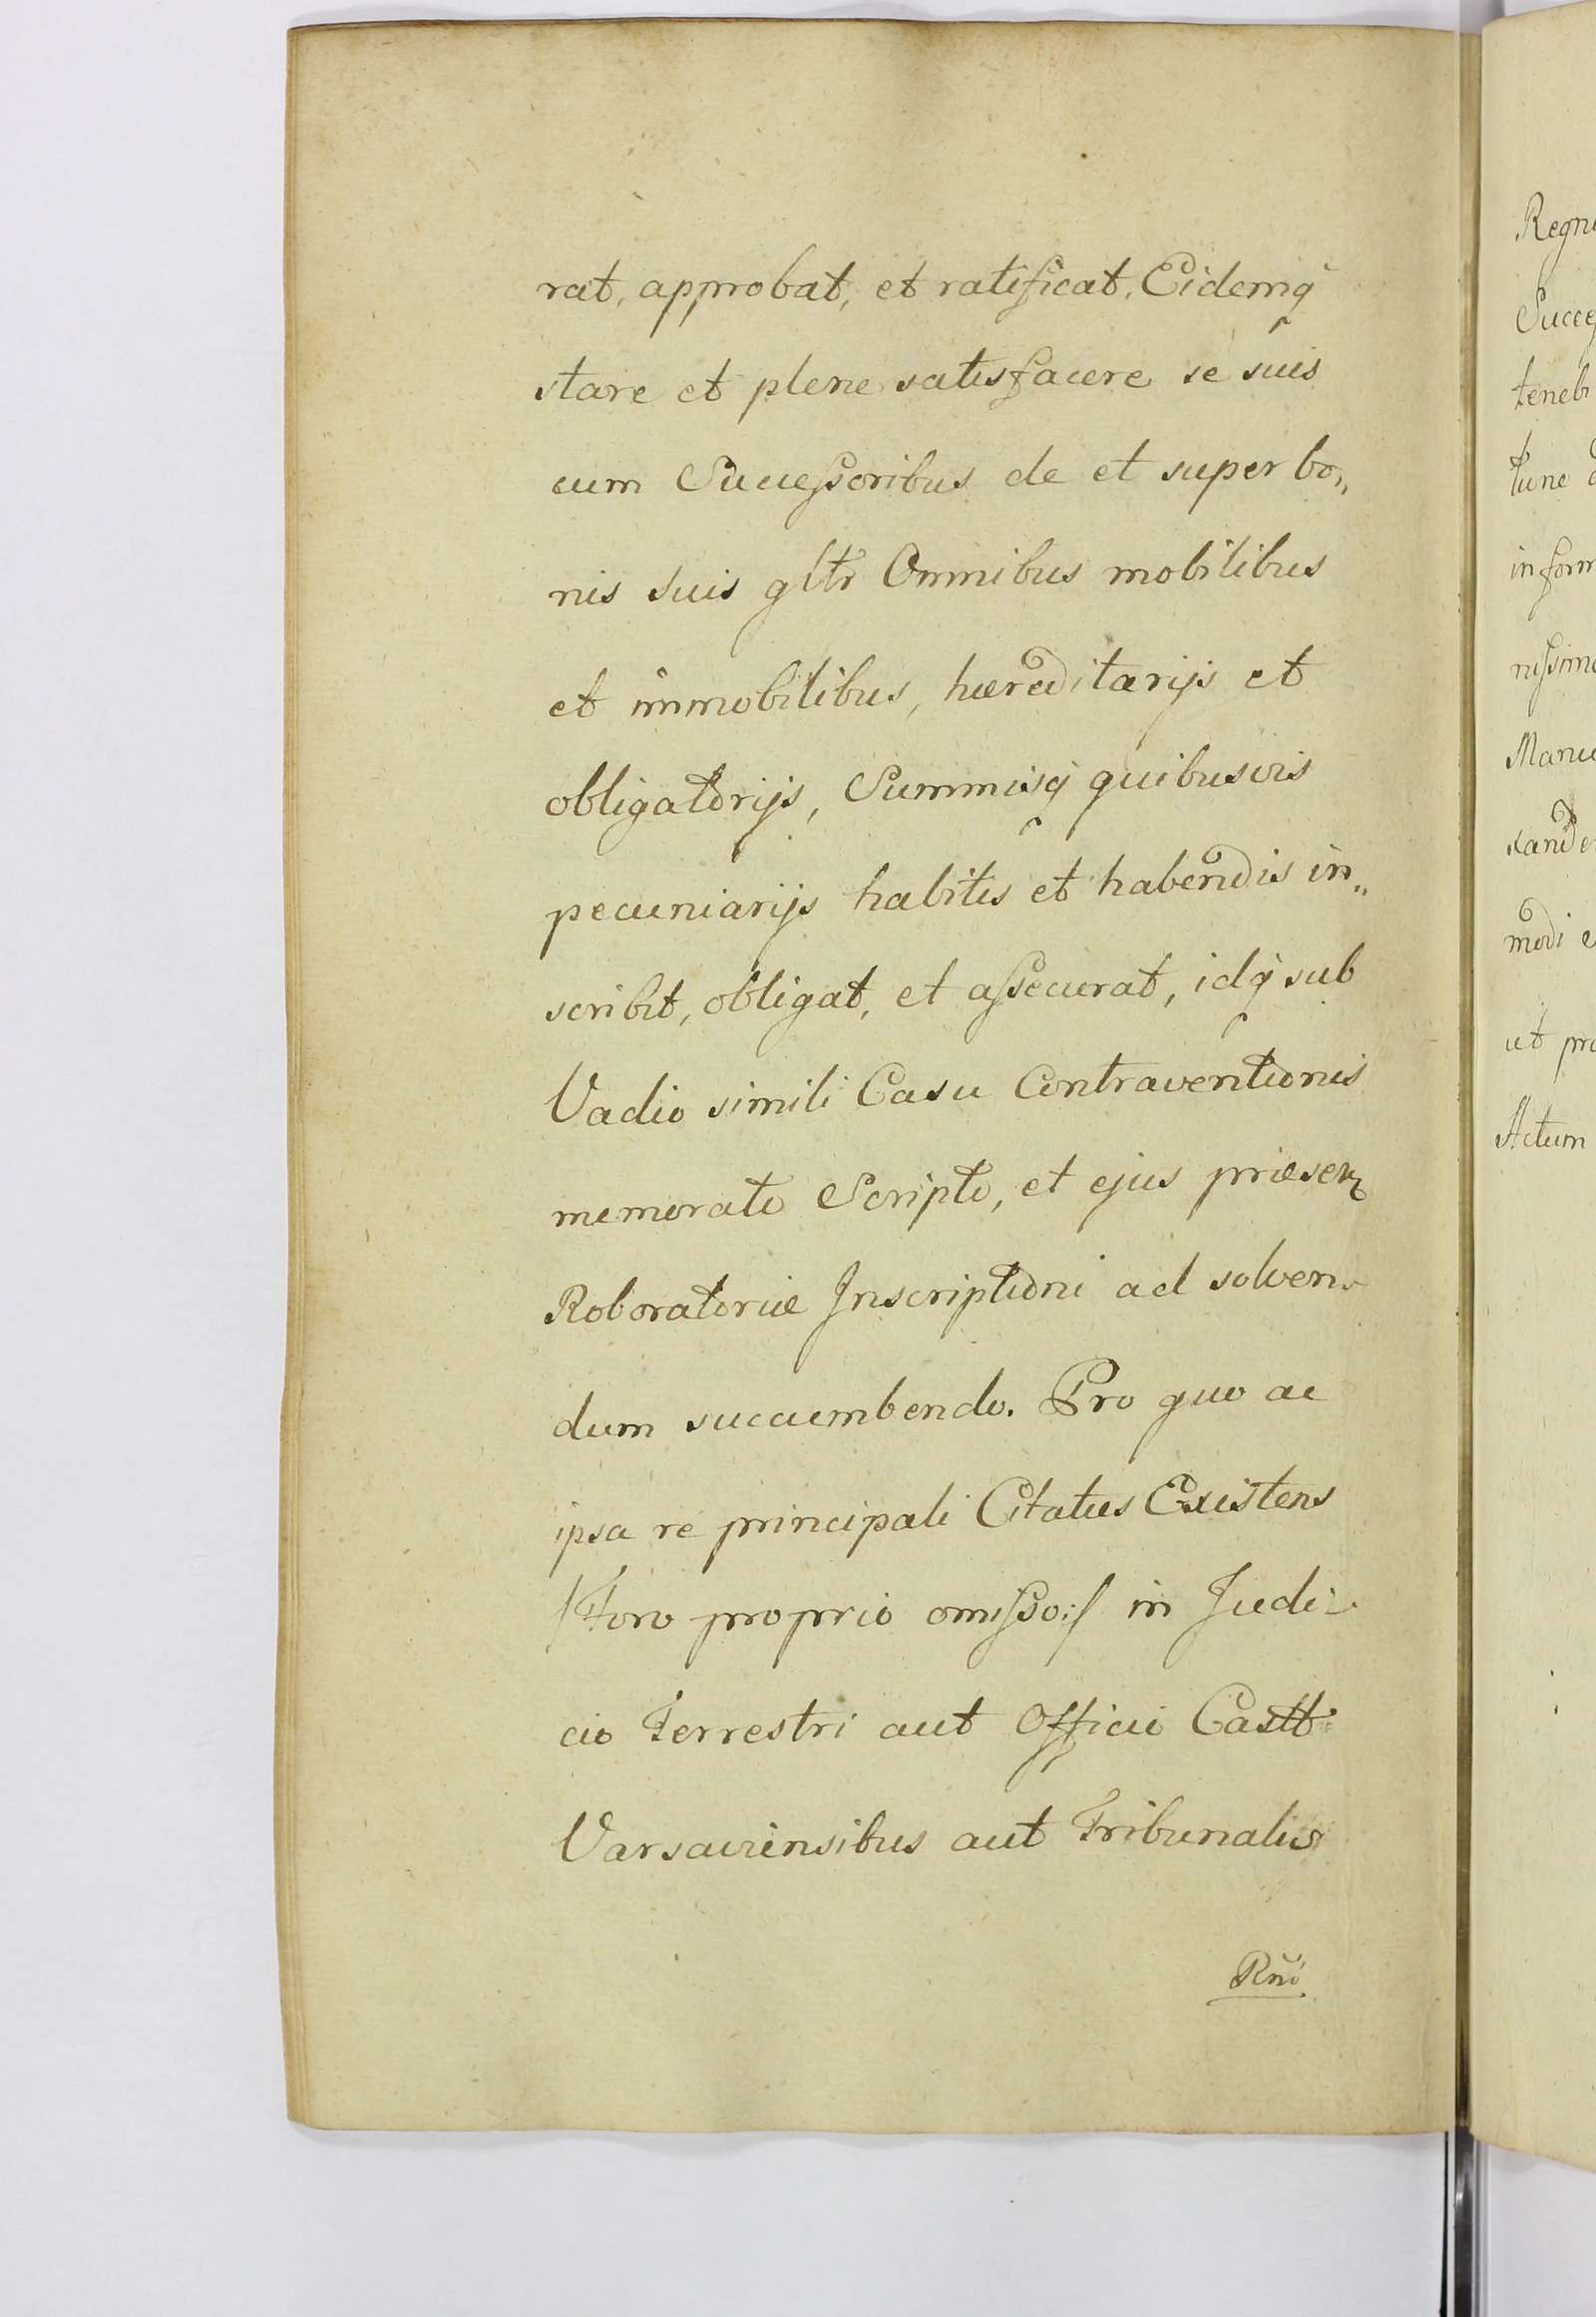 rat, approbat, et ratificat, Eidemq̃
stare et plene satisfacere se suis
cum Successoribus de et super bo„
nis suis gltr Omnibus mobilibus
et immobilibus, hæreditarijs et
obligatorijs, Summisq̃ quibusvis
pecuniarijs habitis et habendis in„
scribit, obligat, et assecurat, idq̃ sub
Vadio simili Casu Contraventionis
memorato Scripto, et ejus præsen
Roboratoriæ Inscriptioni ad solven„
dum succumbendo. Pro quo ac
ipsa re principali Citatus Existens
/Foro proprio omisso:/ in Judi„
cio Terrestri aut Officio Castt:
Varsaviensibus aut Tribunalis
Rñi
Regni
tenebi
tunc
inform
nissim
Manu
modi e
ut pro
Actum